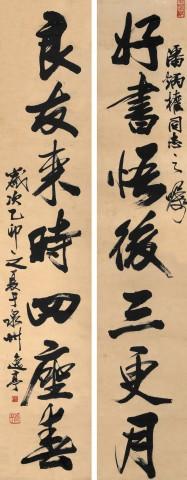 潘炳權同志之嘱
好書悟後三更月
良友来時四座春
歲次乙卯之夏于泉州